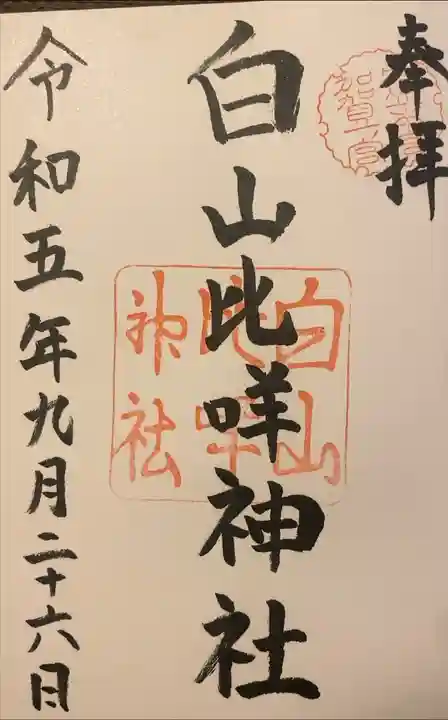 奉拝
白山比咩神社
白山比咩神社
令和五年九月二十六日